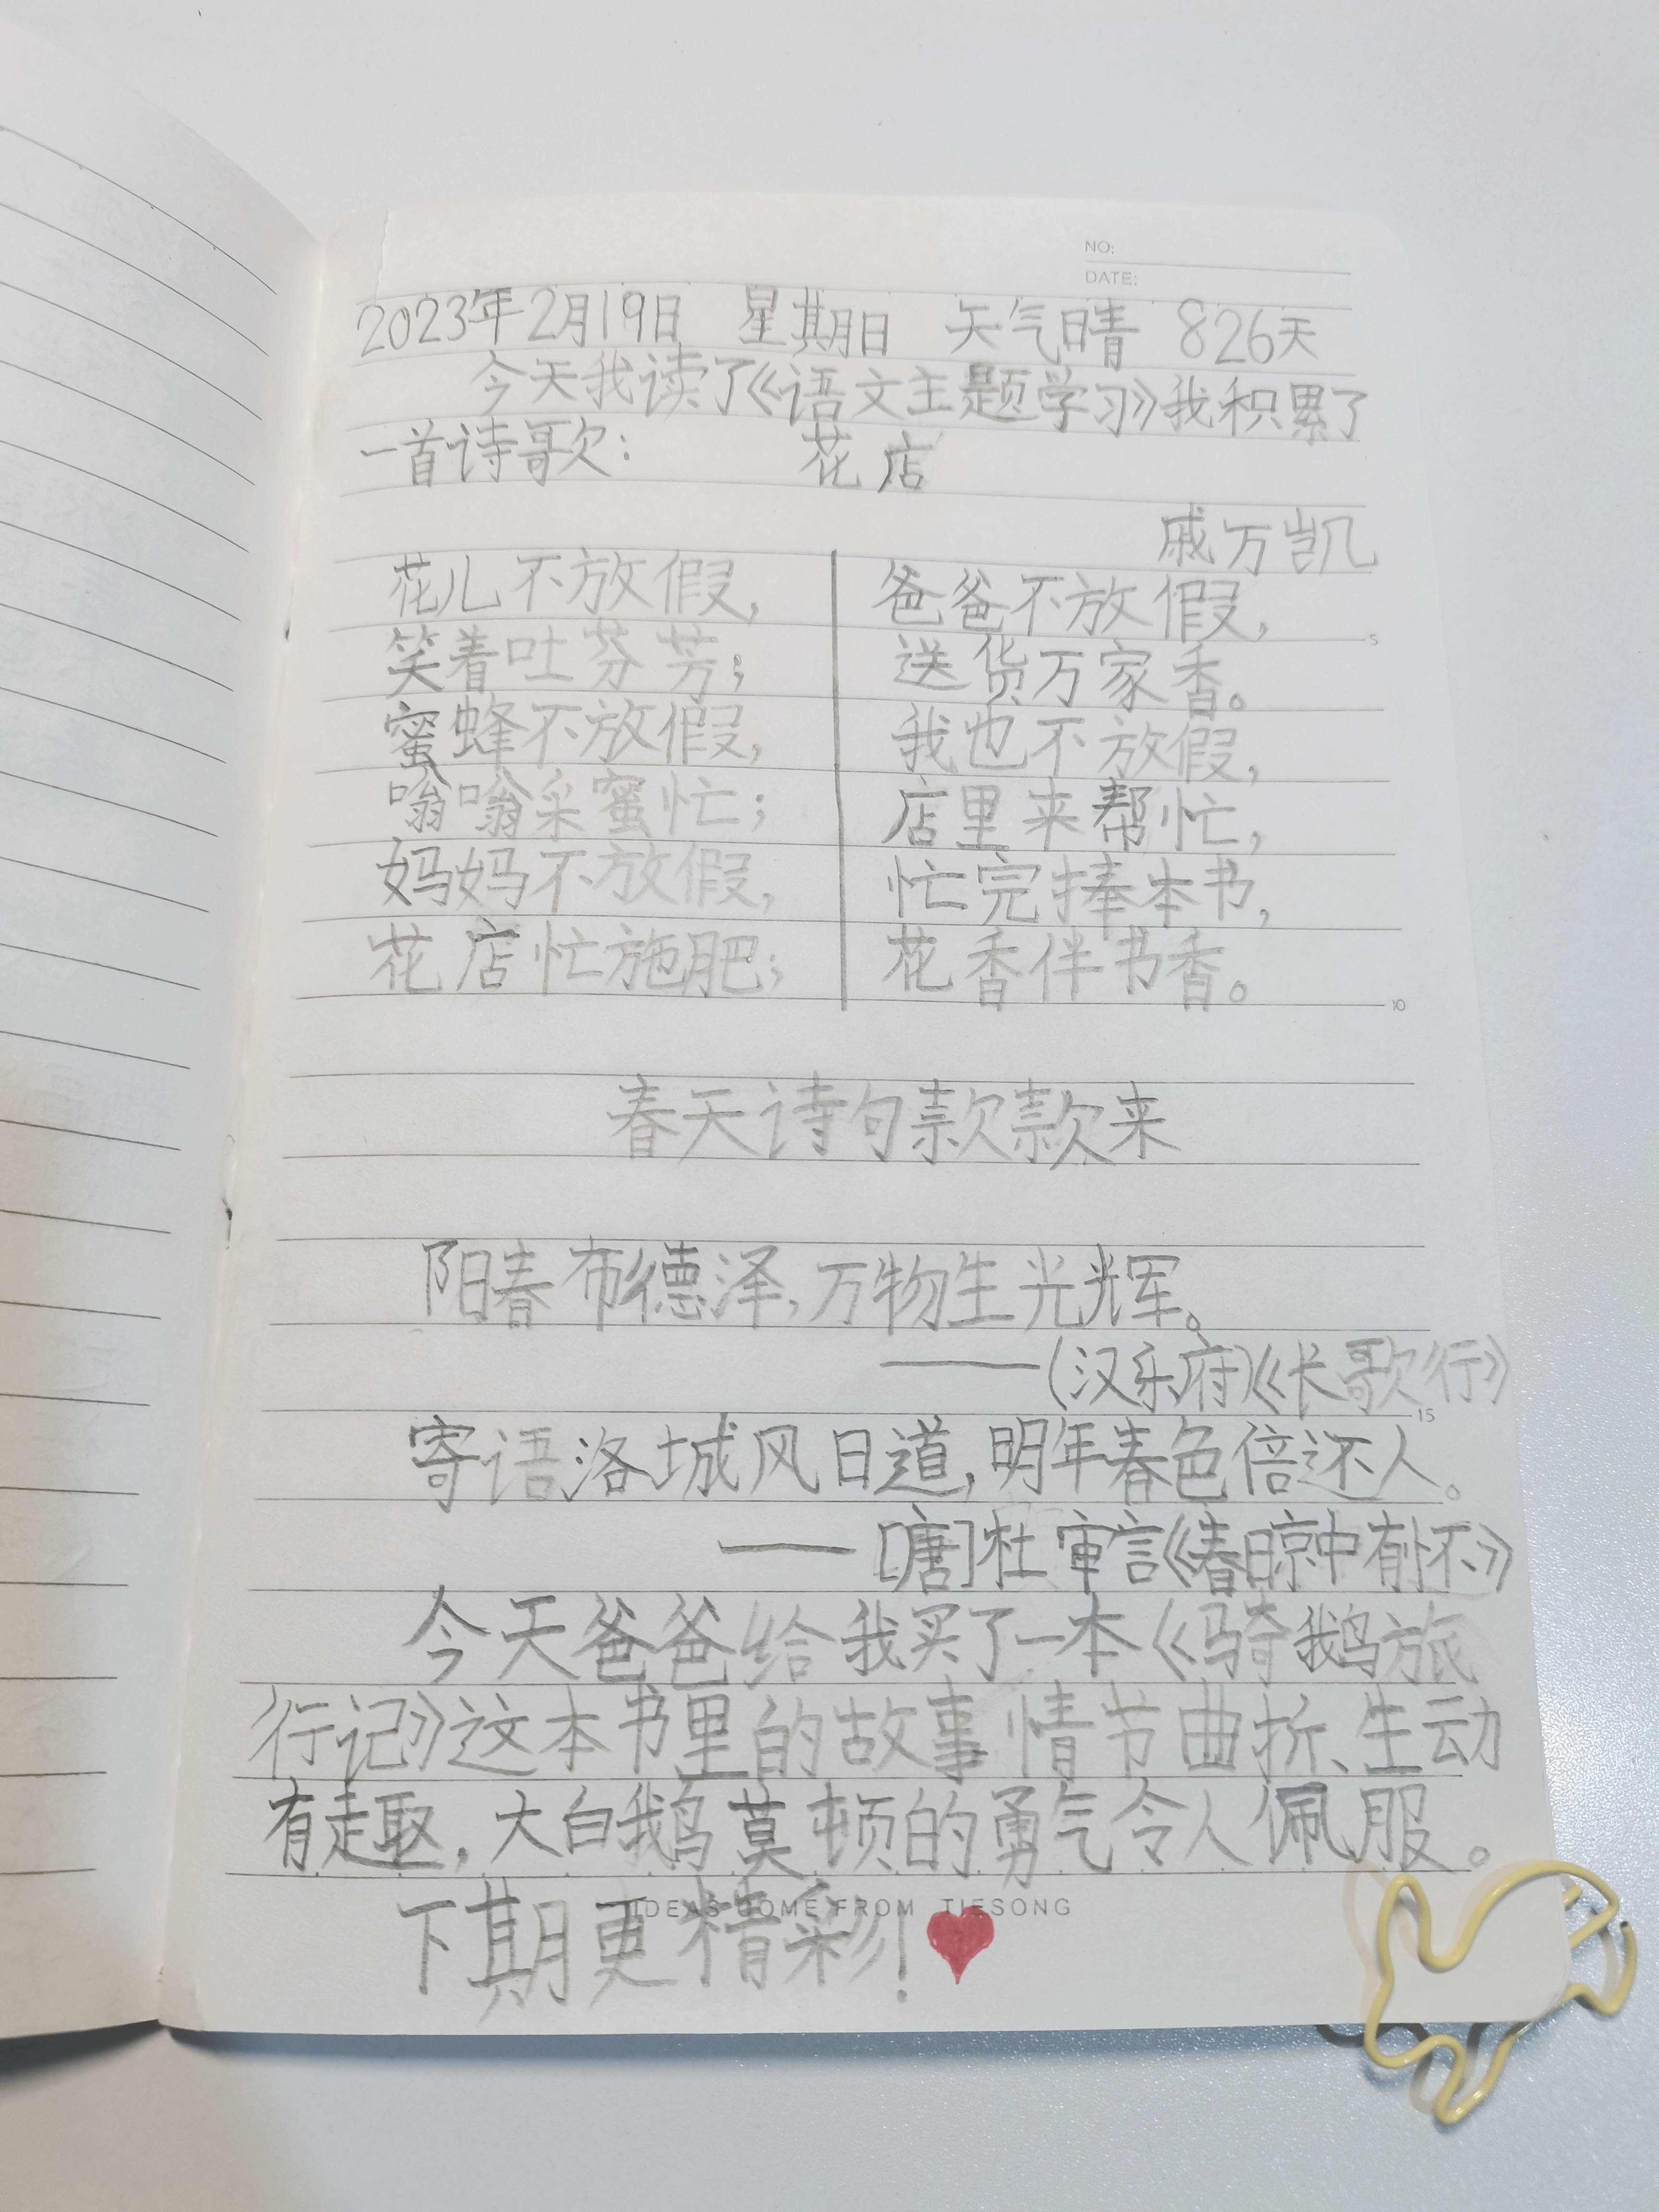 NO:
DATE:
2023年2月19日 星期日 天气晴 826天
今天我读了《语文主题学习》我积累了
一首诗歌: 花店
戚万凯
花儿不放假,
笑着吐芬芳;
蜜蜂不放假,
嗡嗡采蜜忙;
妈妈不放假,
花店忙施肥;
爸爸不放假,
送货万家香。
我也不放假,
店里来帮忙,
忙完捧本书,
花香伴书香。
5
10
春天诗句款款来
阳春布德泽,万物生光辉。
——(汉乐府)《长歌行》
15
寄语洛城风日道,明年春色倍还人。
——[唐]杜审言《春日京中有怀》
今天爸爸给我买了一本《骑鹅旅
行记》这本书里的故事情节曲折、生动
有趣,大白鹅莫顿的勇气令人佩服。
IDEAS COME FROM TIESONG
下期更精彩!